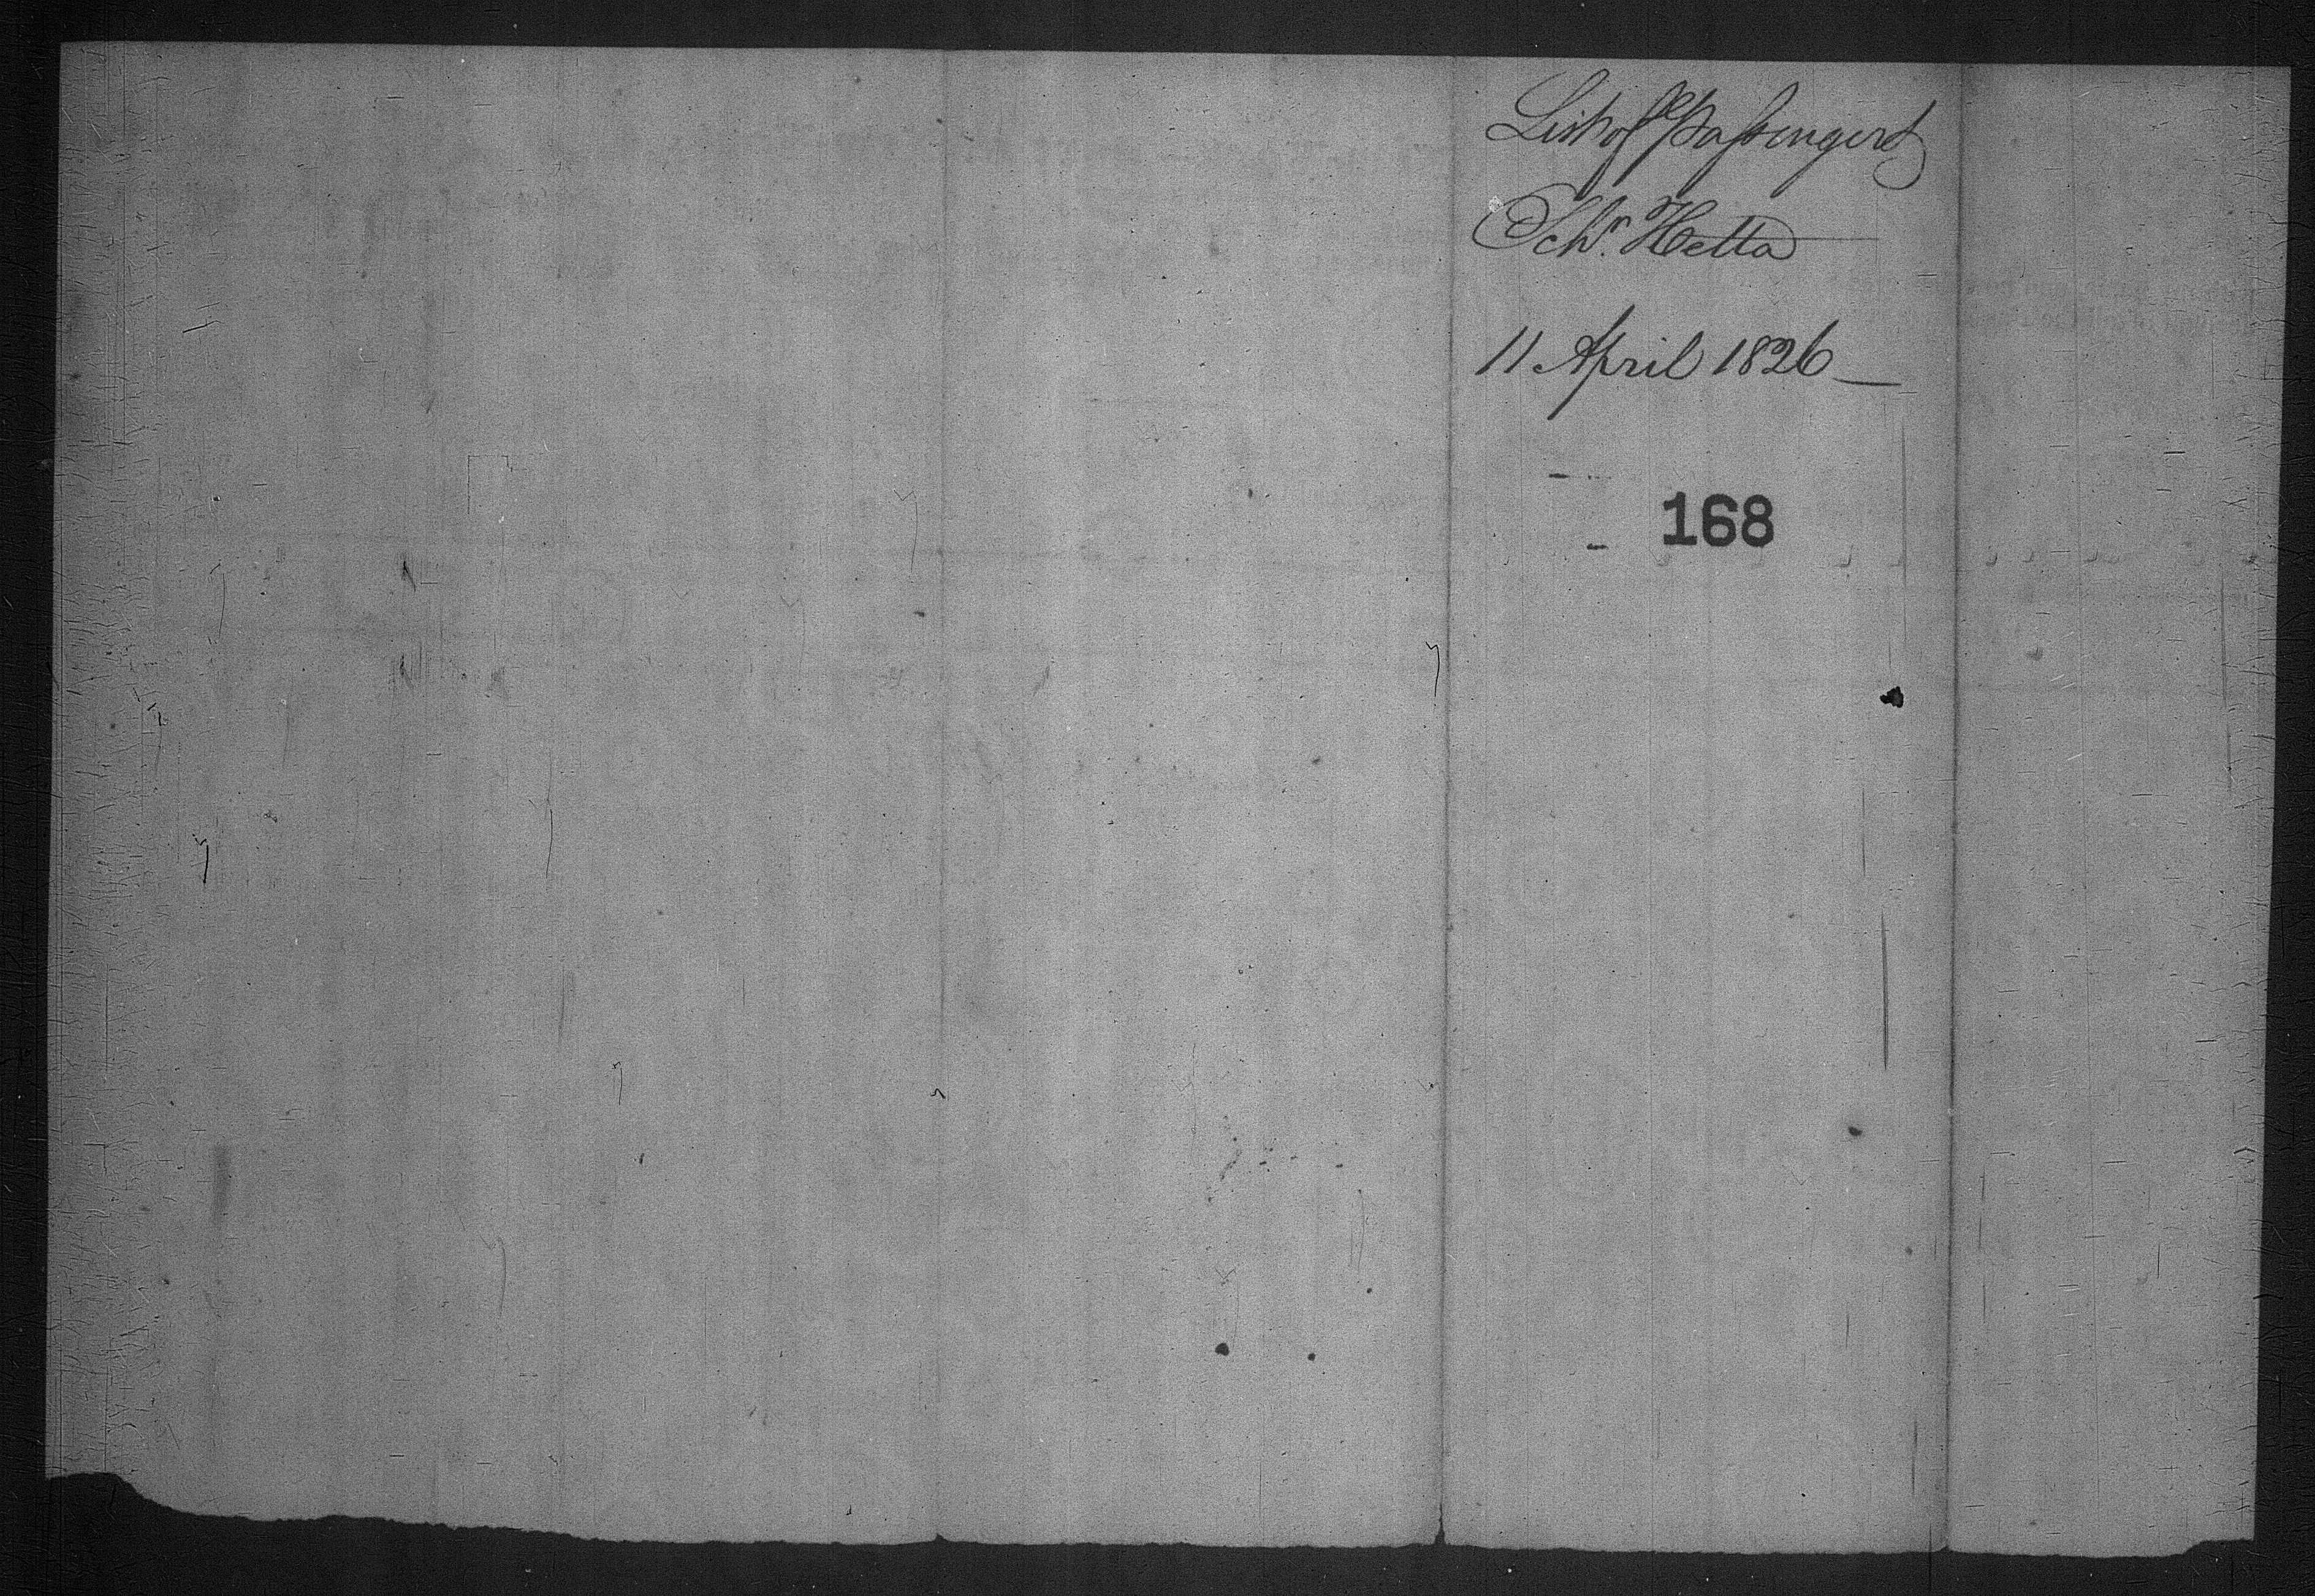 List of Passengers
Schr. Hetta
11 April 1826
168